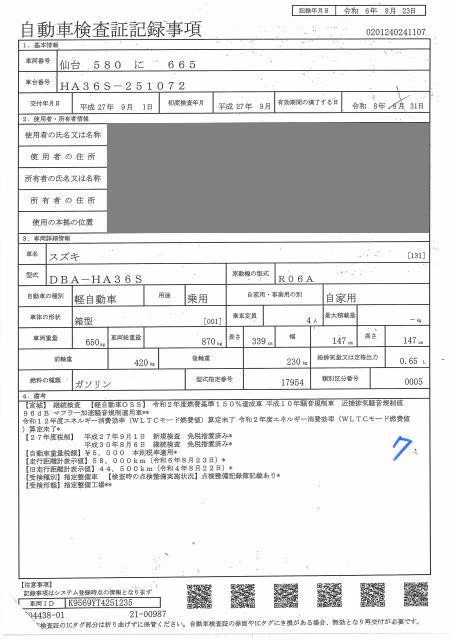 記録年月日 令和 6年 8月 23日
自動車検査証記録事項
0201240241107
1. 基本情報
車両番号 仙台 580 に 665
車台番号 HA36S-251072
交付年月日 平成 27年 9月 1日 初度検査年月 平成 27年 9月 有効期間の満了する日 令和 8年 8月 31日
2. 使用者・所有者情報
使用者の氏名又は名称
使用者の住所
所有者の氏名又は名称
所有者の住所
使用の本拠の位置
3. 車両詳細情報
車名 スズキ [131]
型式 DBA-HA36S 原動機の型式 R06A
自動車の種別 軽自動車 用途 乗用 自家用・事業用の別 自家用
車体の形状 箱型 [001] 乗車定員 4人 最大積載量 -kg
車両重量 650kg 車両総重量 870kg 長さ 339cm 幅 147cm 高さ 147cm
前軸重 420kg 後軸重 230kg 総排気量又は定格出力 0.65 L
燃料の種類 ガソリン 型式指定番号 17954 類別区分番号 0005
4. 備考
【宮城】 継続検査 【軽自動車OSS】 令和2年度燃費基準150%達成車 平成10年騒音規制車 近接排気騒音規制値
96dB マフラー加速騒音規制適用車**
令和12年度エネルギー消費効率(WLTCモード燃費値)算定未了 令和2年度エネルギー消費効率(WLTCモード燃費値
)算定未了*
【27年度税制】 平成27年9月1日 新規検査 免税措置済み*
平成30年8月6日 継続検査 免税措置済み*
【自動車重量税額】¥5,000 本則税率適用*
【走行距離計表示値】58,000km(令和6年8月23日)*
【旧走行距離計表示値】44,500km(令和4年8月22日)*
【受検種別】指定整備車 【検査時の点検整備実施状況】点検整備記録簿記載あり*
【受検形態】指定整備工場**
7
【注意事項】
記録事項はシステム登録時点の情報となります
車両ID K9569YT4251235
04438-01 21-00987
検査証のICタグ部分は折り曲げずに保管ください。自動車検査証の券面やICタグにき損がある場合、無効となり再交付が必要です。